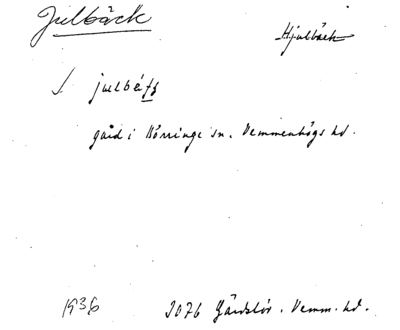 Julbäck
Hjulbäck
julbäfz
gård i Börringe sn. Vemmenhögs hd.
1936
Gärdslöv. Vemm. hd.